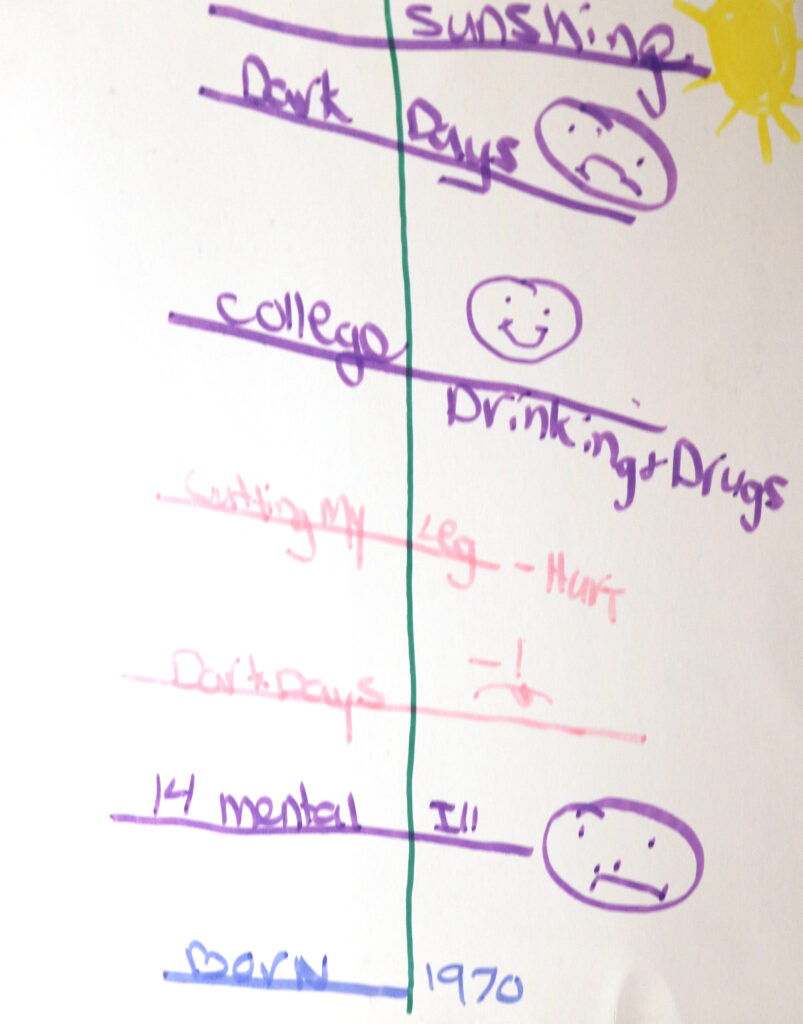 sunshine
Dark Days
college
Drinking + Drugs
Cutting My Leg - Hurt
Dark Days - !
14 mental Ill
BORN 1970